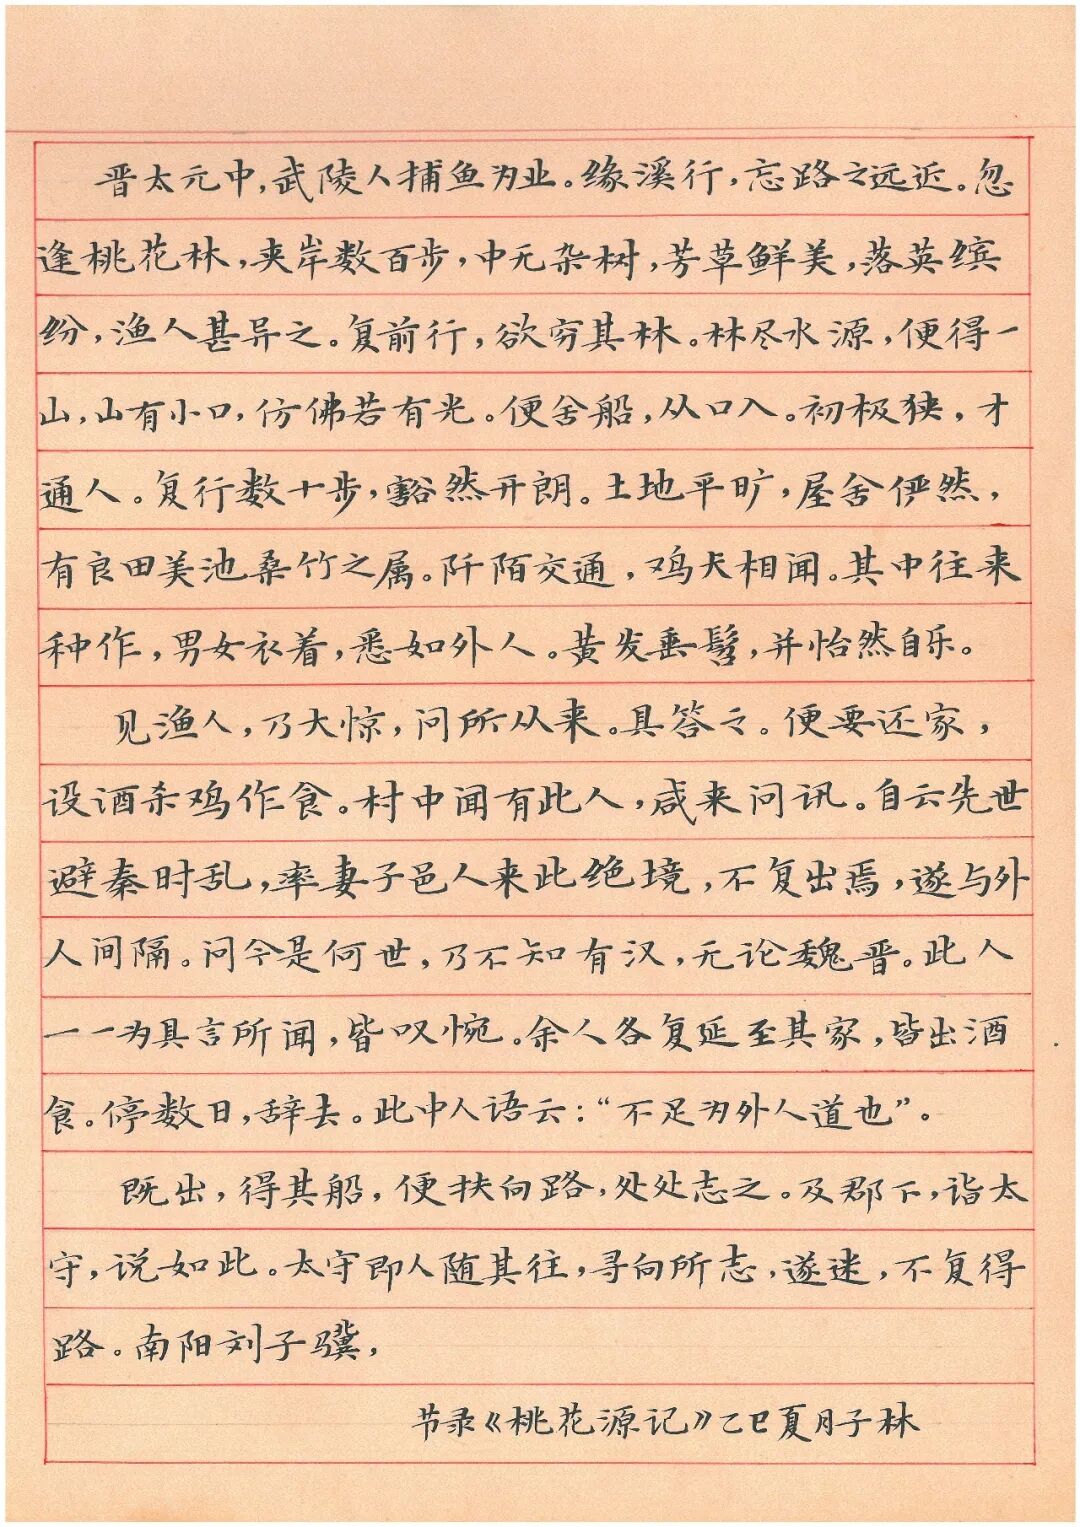 晋太元中,武陵人捕鱼为业。缘溪行,忘路之远近。忽
逢桃花林,夹岸数百步,中无杂树,芳草鲜美,落英缤
纷,渔人甚异之。复前行,欲穷其林。林尽水源,便得一
山,山有小口,仿佛若有光。便舍船,从口入。初极狭,才
通人。复行数十步,豁然开朗。土地平旷,屋舍俨然,
有良田美池桑竹之属。阡陌交通,鸡犬相闻。其中往来
种作,男女衣着,悉如外人。黄发垂髫,并怡然自乐。
见渔人,乃大惊,问所从来。具答之。便要还家,
设酒杀鸡作食。村中闻有此人,咸来问讯。自云先世
避秦时乱,率妻子邑人来此绝境,不复出焉,遂与外
人间隔。问今是何世,乃不知有汉,无论魏晋。此人
一一为具言所闻,皆叹惋。余人各复延至其家,皆出酒
食。停数日,辞去。此中人语云:“不足为外人道也”。
既出,得其船,便扶向路,处处志之。及郡下,诣太
守,说如此。太守即人随其往,寻向所志,遂迷,不复得
路。南阳刘子骥,
节录《桃花源记》乙巳夏月子林